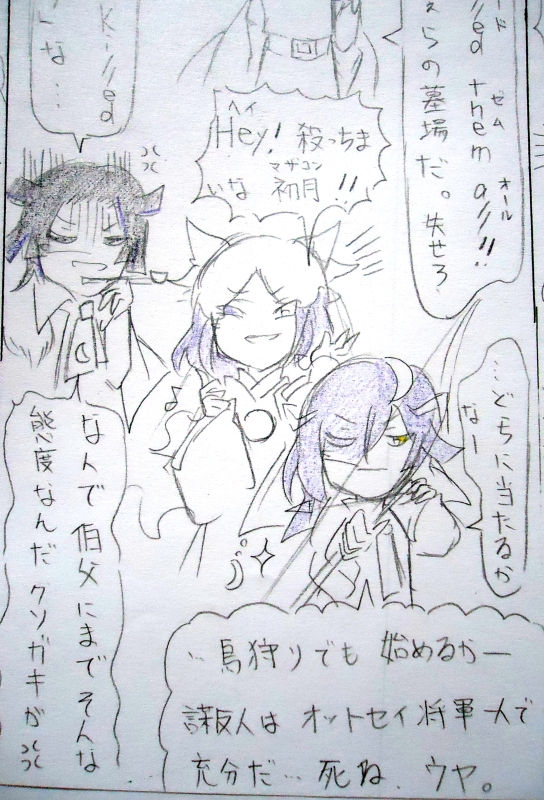 ード
lled them all!!
ゼム オール
えらの墓場だ。失せろ
Killed
な…
ヘイ
Hey! 殺っちま
マザコン
いな 初月!!
…どちに当たるか
なー
なんで伯父にまでそんな
態度なんだクソガキが
…鳥狩りでも始めるかー
謀反人はオットセイ将軍一人で
充分だ…死ね、ウヤ。